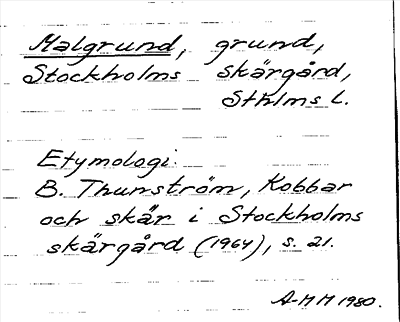 Malgrund, grund,
Stockholms skärgård,
Sthlms l.
Etymologi:
B. Thunström, Kobbar
och skär i Stockholms
skärgård (1964), s. 21.
A-M M 1980.